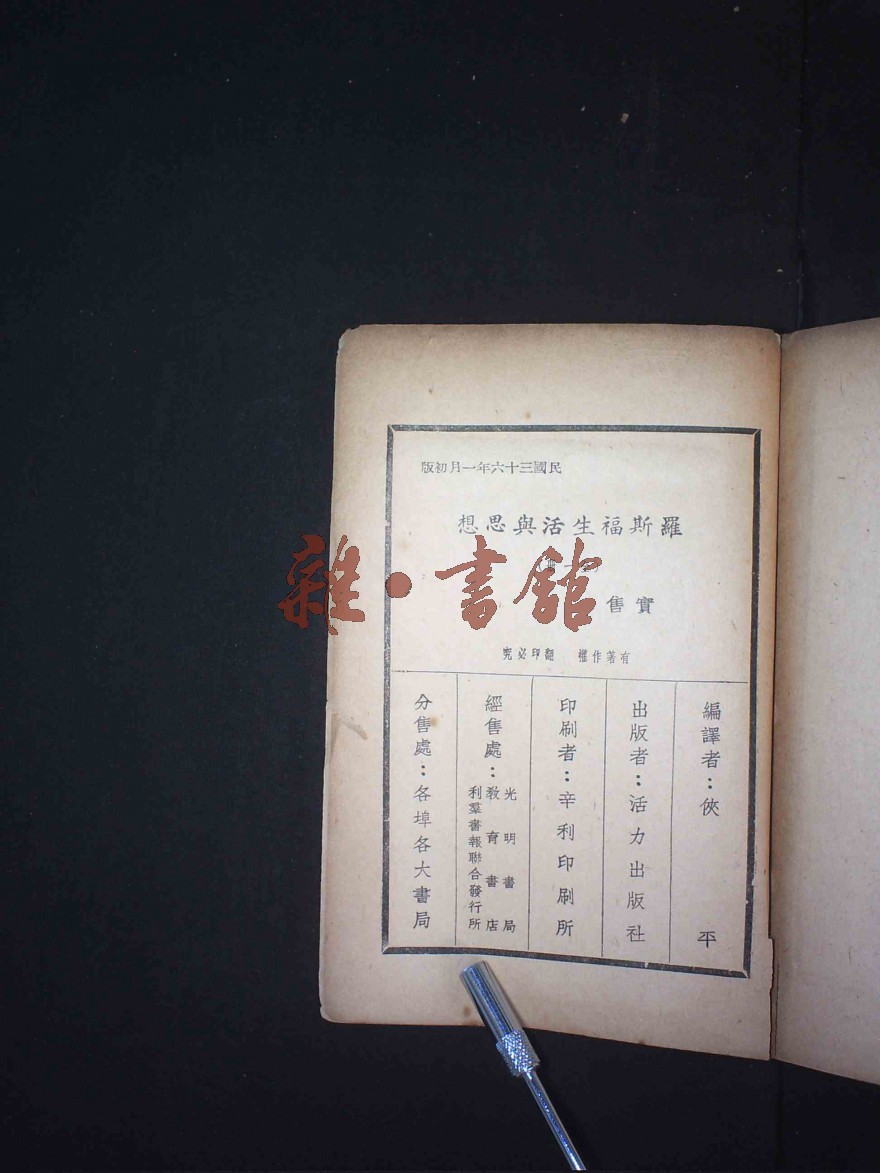 民國三十六年一月初版
羅斯福生活與思想
實售
有著作權 翻印必究
編譯者：俠 平
出版者：活力出版社
印刷者：辛利印刷所
經售處：
光明書局
教育書店
利羣書報聯合發行所
分售處：各埠各大書局
雜·書館